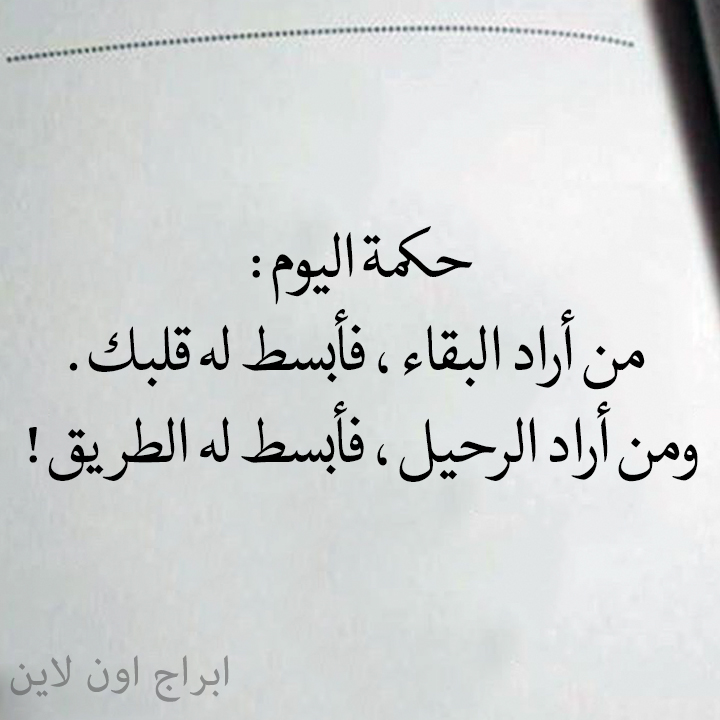 حكمة اليوم :
من أراد البقاء ، فأبسط له قلبك .
ومن أراد الرحيل ، فأبسط له الطريق !
ابراج اون لاين